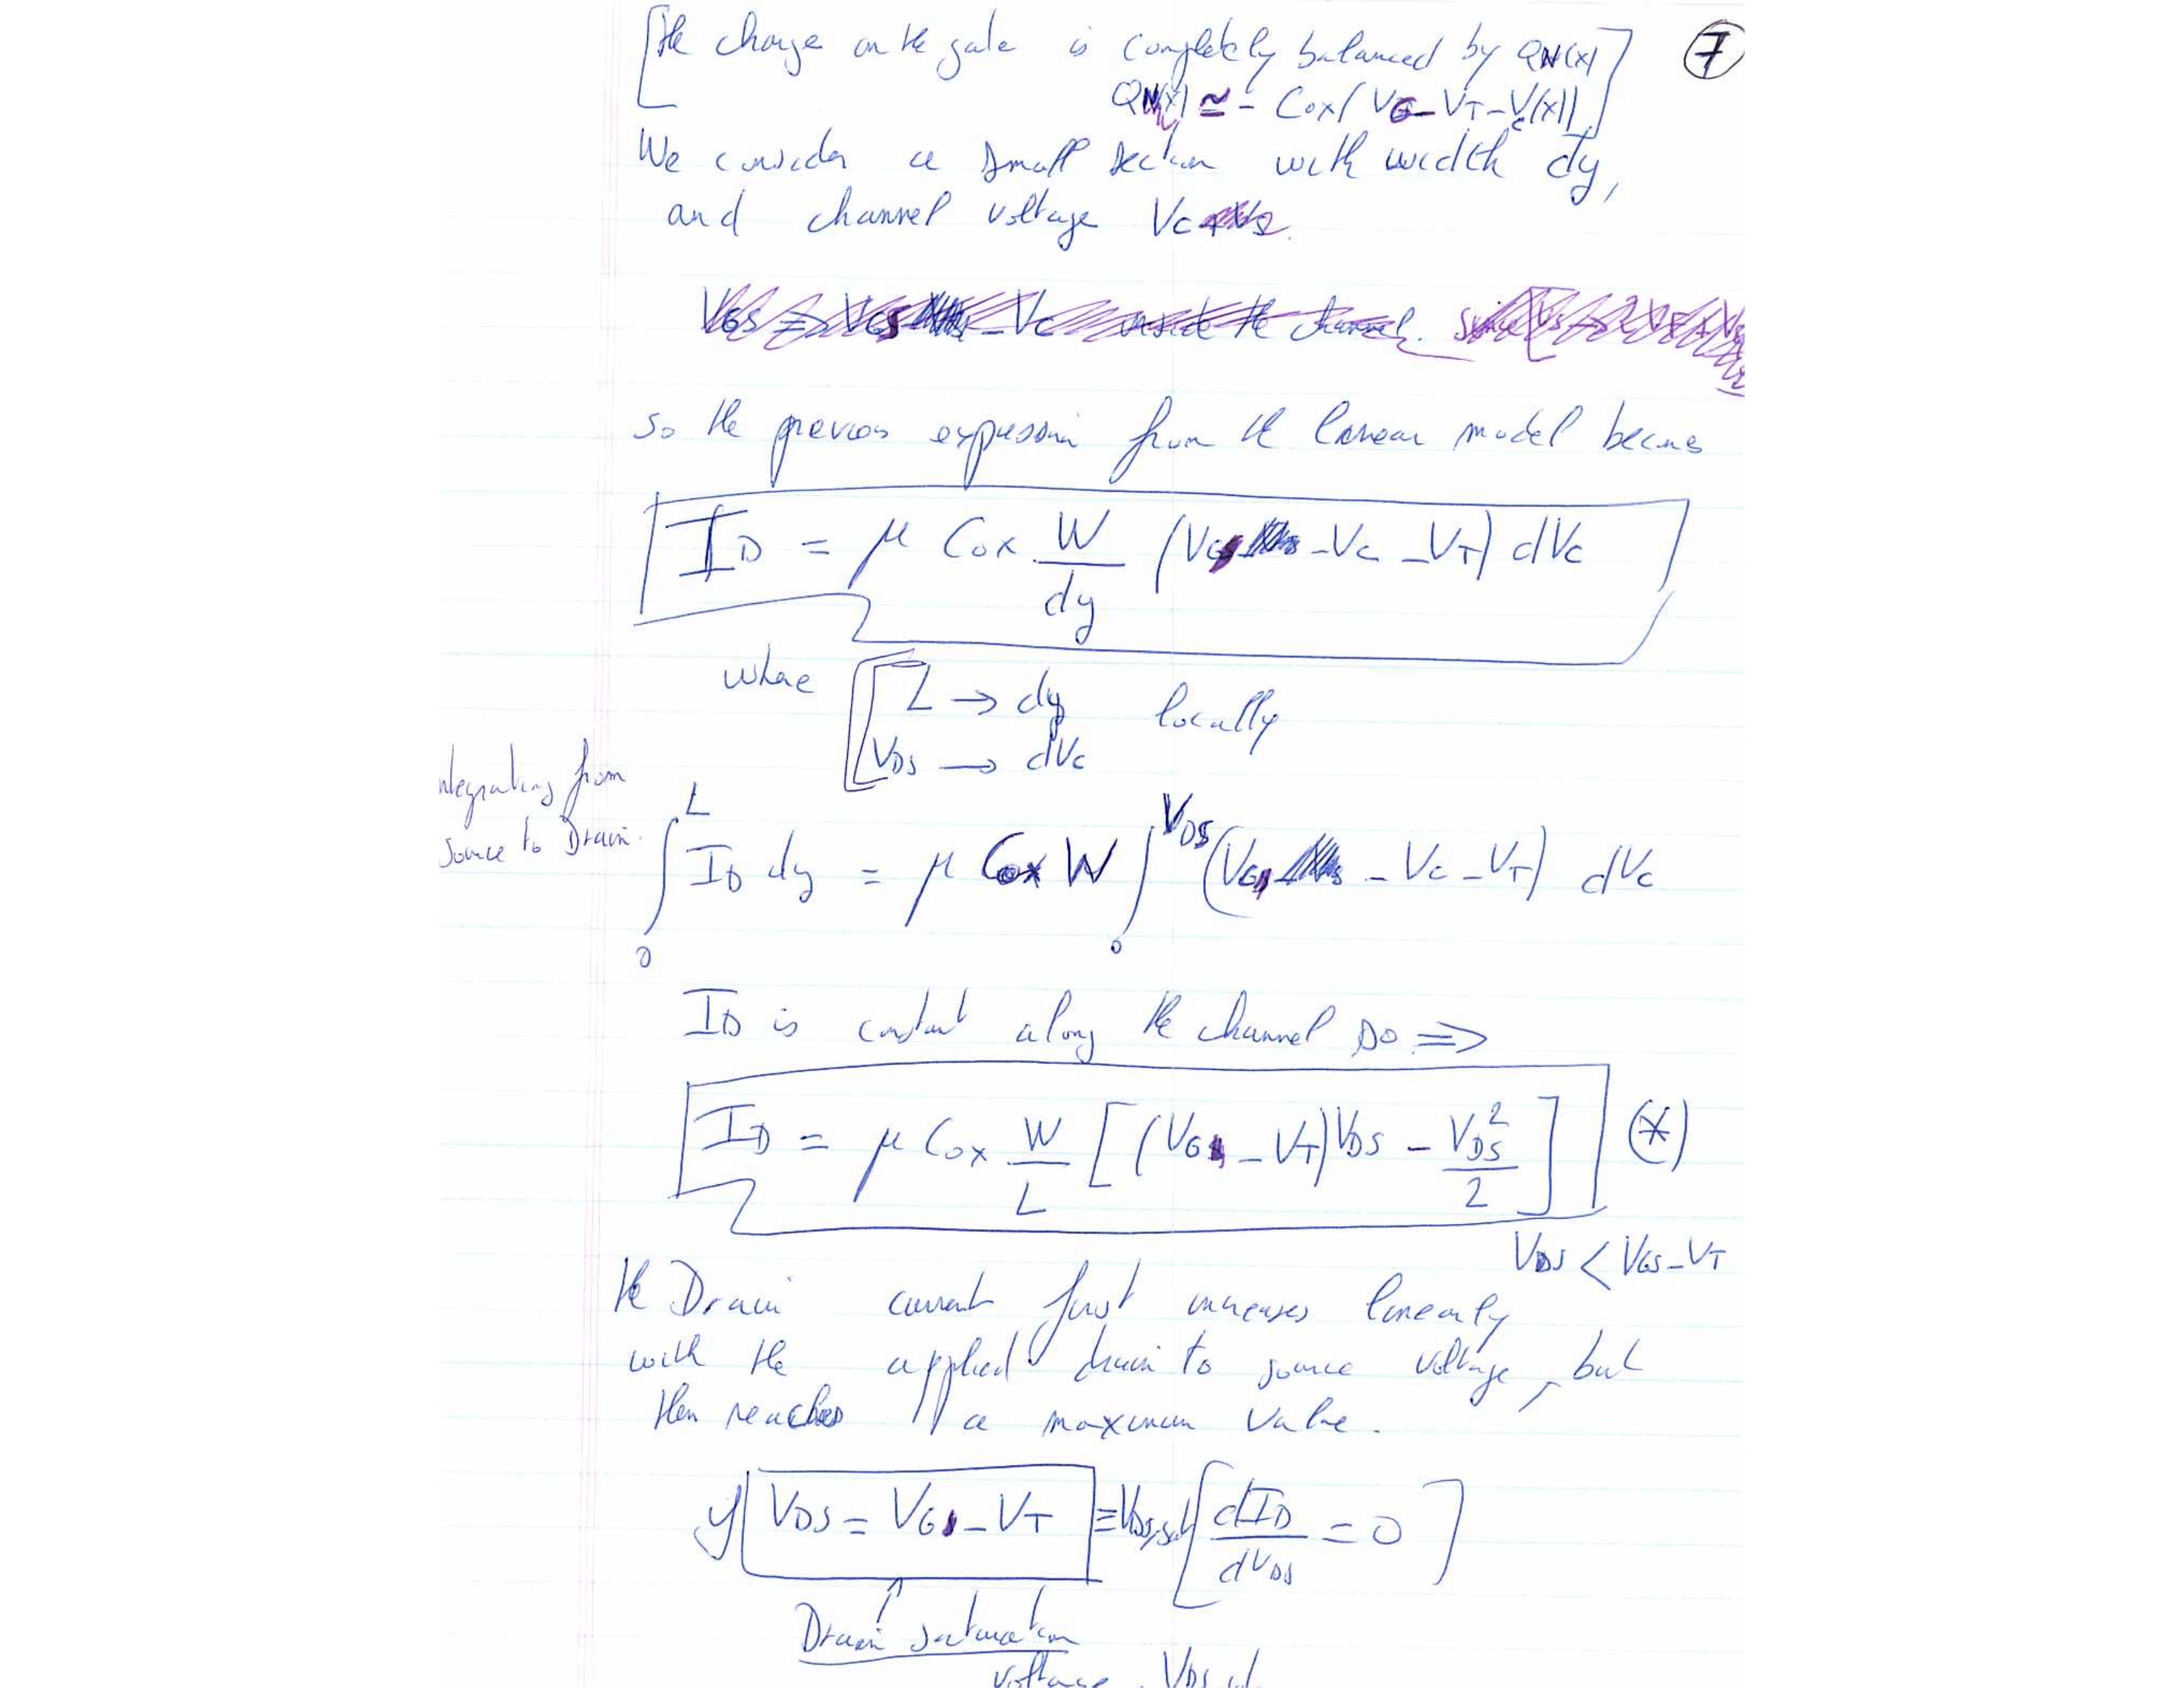 [the charge on the gate is completely balanced by QN(x)]
7
QN(x) ≃ - Cox(VG-VT-Vc(x))
We consider a small section with width dy,
and channel voltage Vc
so the previous expression from the linear model becomes
ID = μ Cox W/dy (VGS - Vc - VT) dVc
where [L → dy locally
VDS → dVc
Integrating from
source to Drain.
∫₀ᴸ ID dy = μ Cox W ∫₀^VDS (VGS - Vc - VT) dVc
ID is constant along the channel so ⇒
ID = μ Cox W/L [(VGS - VT)VDS - VDS²/2] (*)
VDS < VGS-VT
the Drain current first increases linearly
with the applied drain to source voltage, but
then reaches a maximum value.
if VDS = VGS-VT ≡ VDS,sat [dID/dVDS = 0]
Drain saturation
voltage